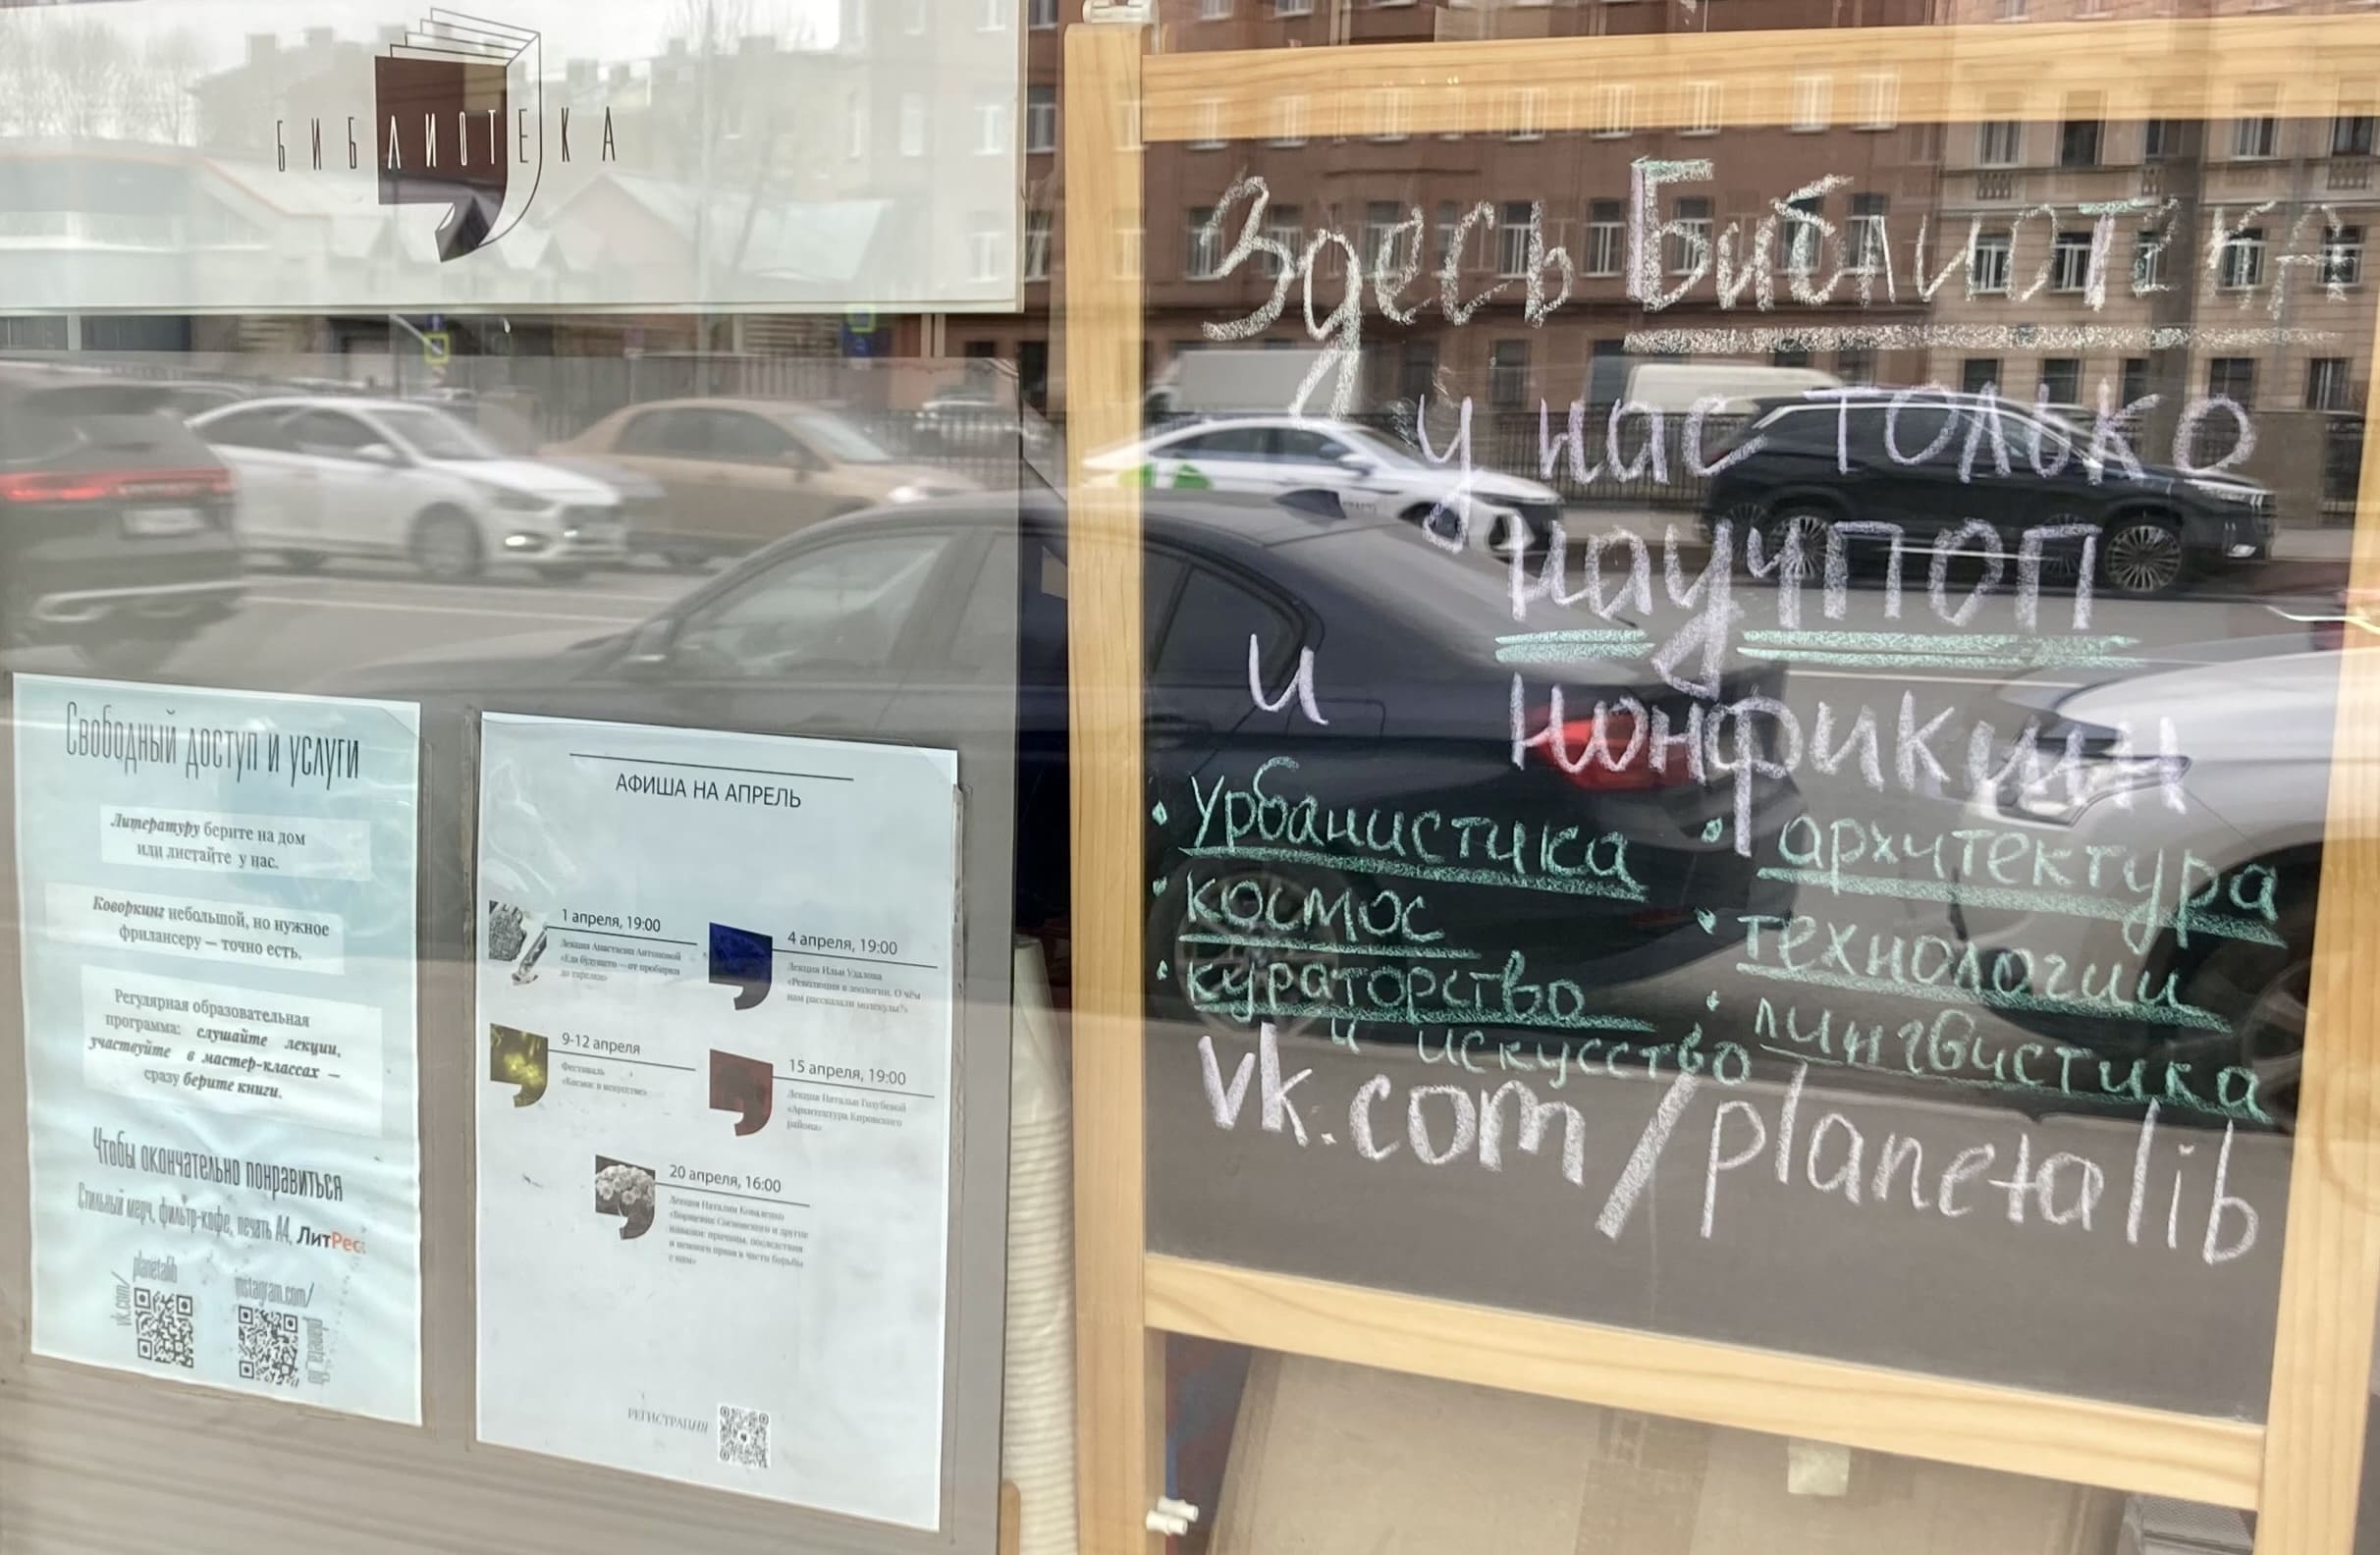 БИБЛИОТЕКА
Свободный доступ и услуги
Литературу берите на дом
или листайте у нас.
Коворкинг небольшой, но нужное
фрилансеру — точно есть.
Регулярная образовательная
программа: слушайте лекции,
участвуйте в мастер-классах —
сразу берите книги.
Чтобы окончательно понравиться
Стильный мерч, фильтр-кофе, печать А4, ЛитРес:
vk.com/
planetalib
instagram.com/
planeta_lib
АФИША НА АПРЕЛЬ
1 апреля, 19:00
Лекция Анастасии Антоновой
«Еда будущего — от пробирки
до тарелки»
4 апреля, 19:00
Лекция Ильи Удалова
«Революция в зоологии. О чём
нам рассказали молекулы?»
9-12 апреля
Фестиваль
«Космос в искусстве»
15 апреля, 19:00
Лекция Натальи Голубевой
«Архитектура Кировского
района»
20 апреля, 16:00
Лекция Наталии Коваленко
«Борщевик Сосновского и другие
причины, последствия
и немного права в части борьбы
с ним»
РЕГИСТРАЦИЯ
Здесь Библиотека
у нас только
научпоп
и нонфикшн
• урбанистика
• космос
• кураторство
и искусство
• архитектура
• технологии
• лингвистика
vk.com/planetalib